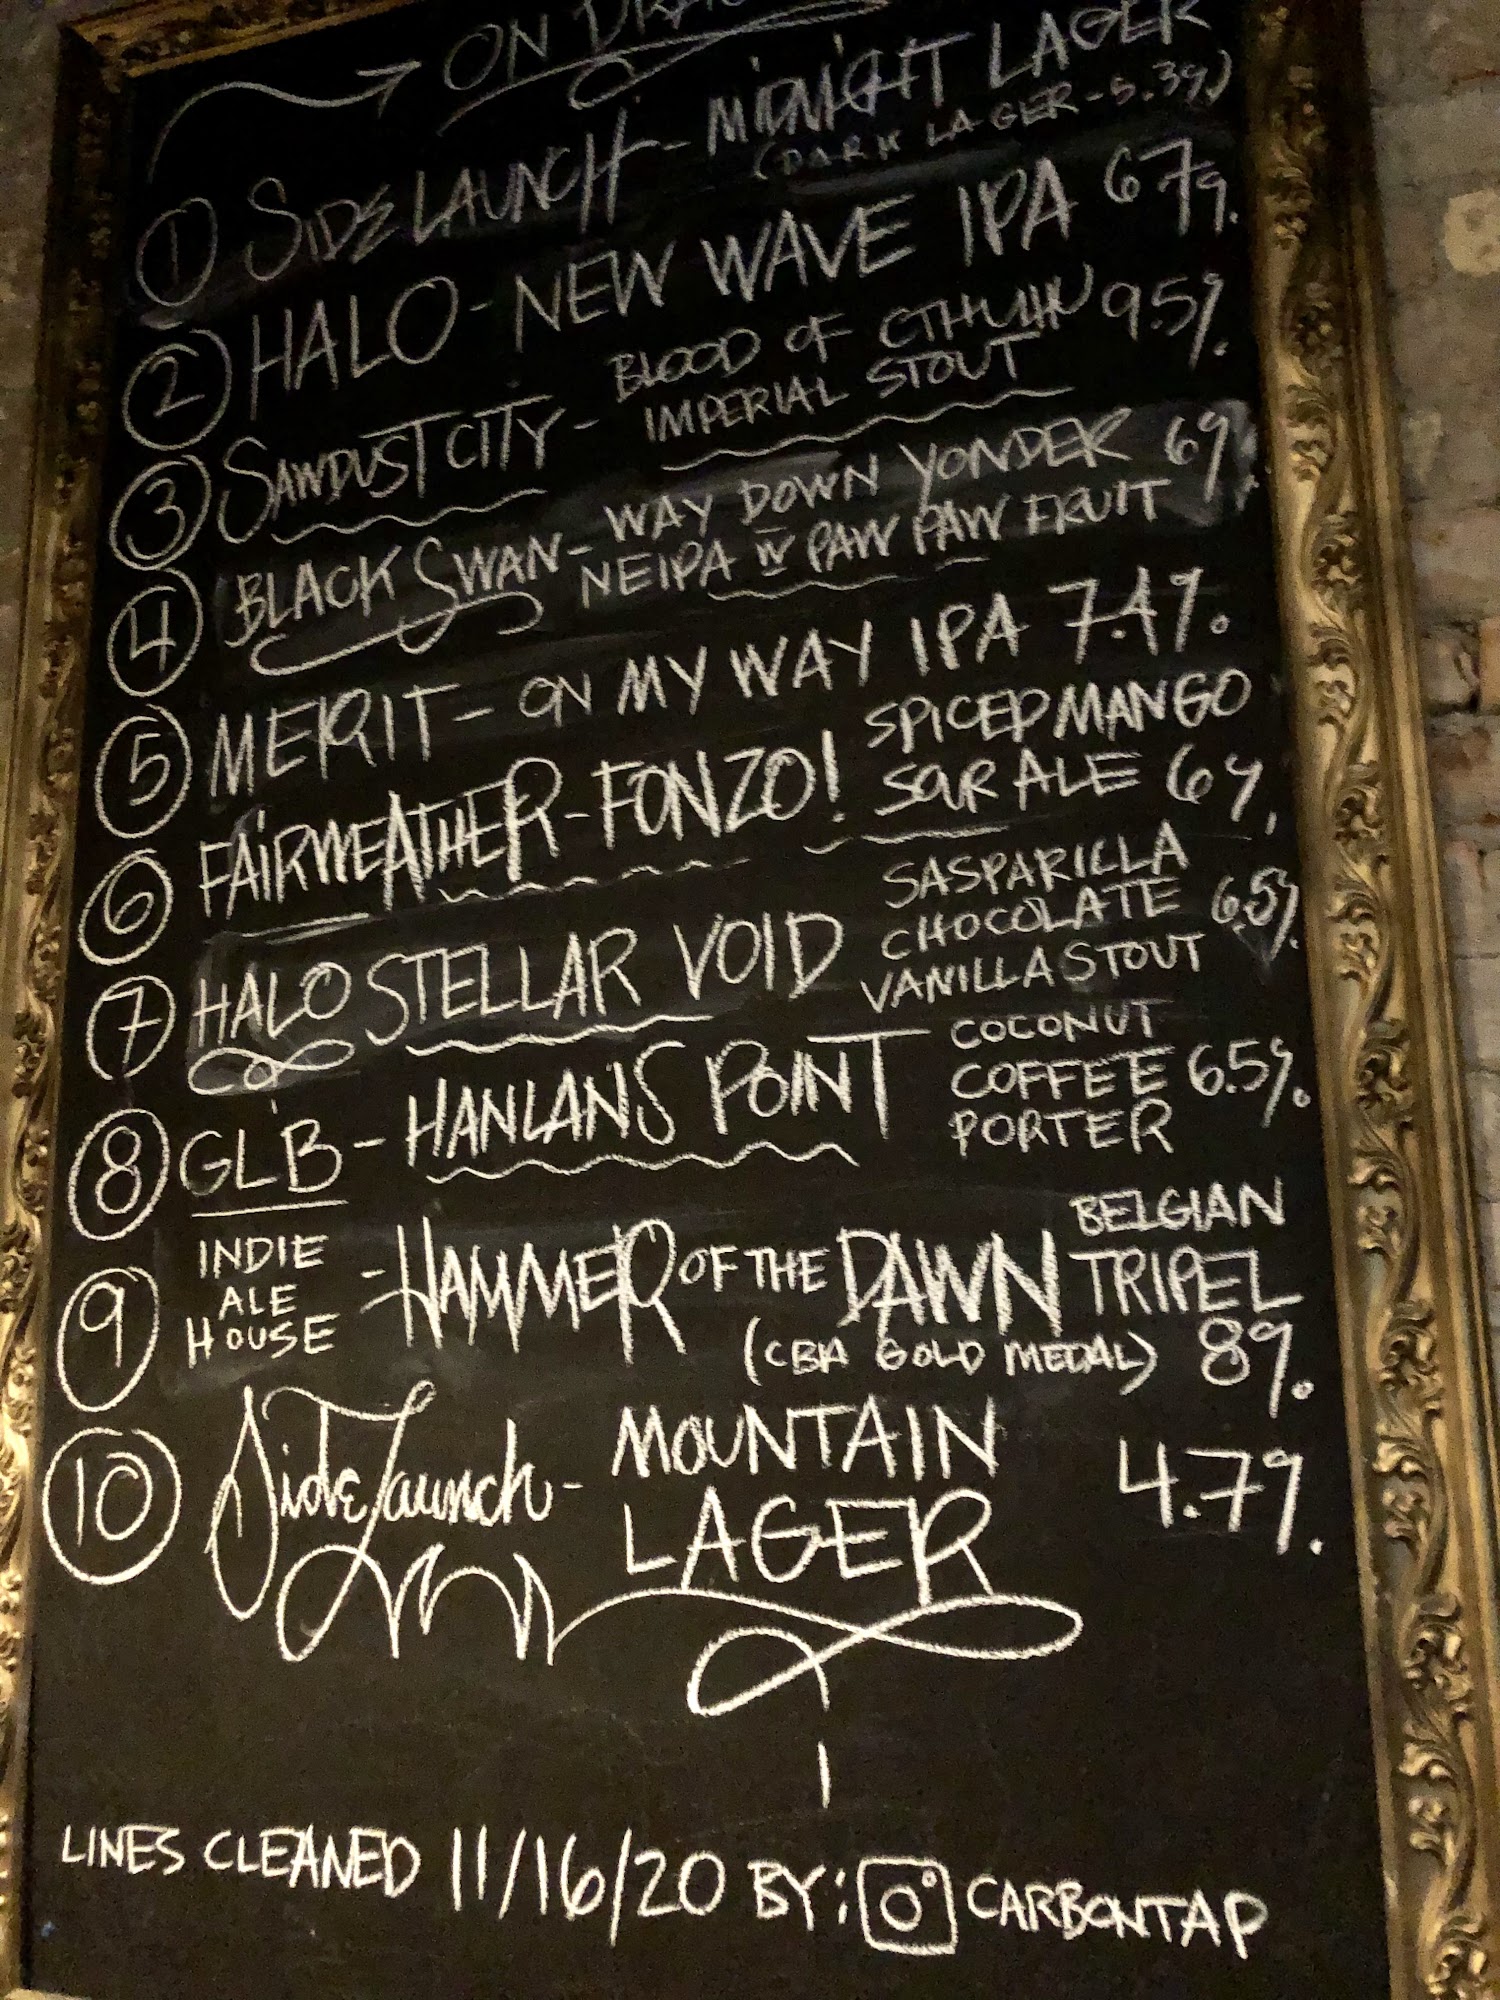 ON DRA
① SIDE LAUNCH - MIDNIGHT LAGER
(DARK LAGER - 5.3%)
② HALO - NEW WAVE IPA 6.7%.
③ SAWDUST CITY - BLOOD OF CTHULHU 9.5%.
IMPERIAL STOUT
④ BLACK SWAN - WAY DOWN YONDER 6%
NEIPA W PAW PAW FRUIT
⑤ MERIT - ON MY WAY IPA 7.4%.
⑥ FAIRWEATHER - FONZO! SPICED MANGO
SOUR ALE 6%.
⑦ HALO STELLAR VOID SASPARILLA
CHOCOLATE 6.5%.
VANILLA STOUT
⑧ GLB - HANLANS POINT COCONUT
COFFEE 6.5%.
PORTER
⑨ INDIE ALE HOUSE - HAMMER OF THE DAWN BELGIAN
TRIPEL
(CBA GOLD MEDAL) 8%.
⑩ Side Launch - MOUNTAIN
LAGER 4.7%.
LINES CLEANED 11/16/20 BY: CARBONTAP